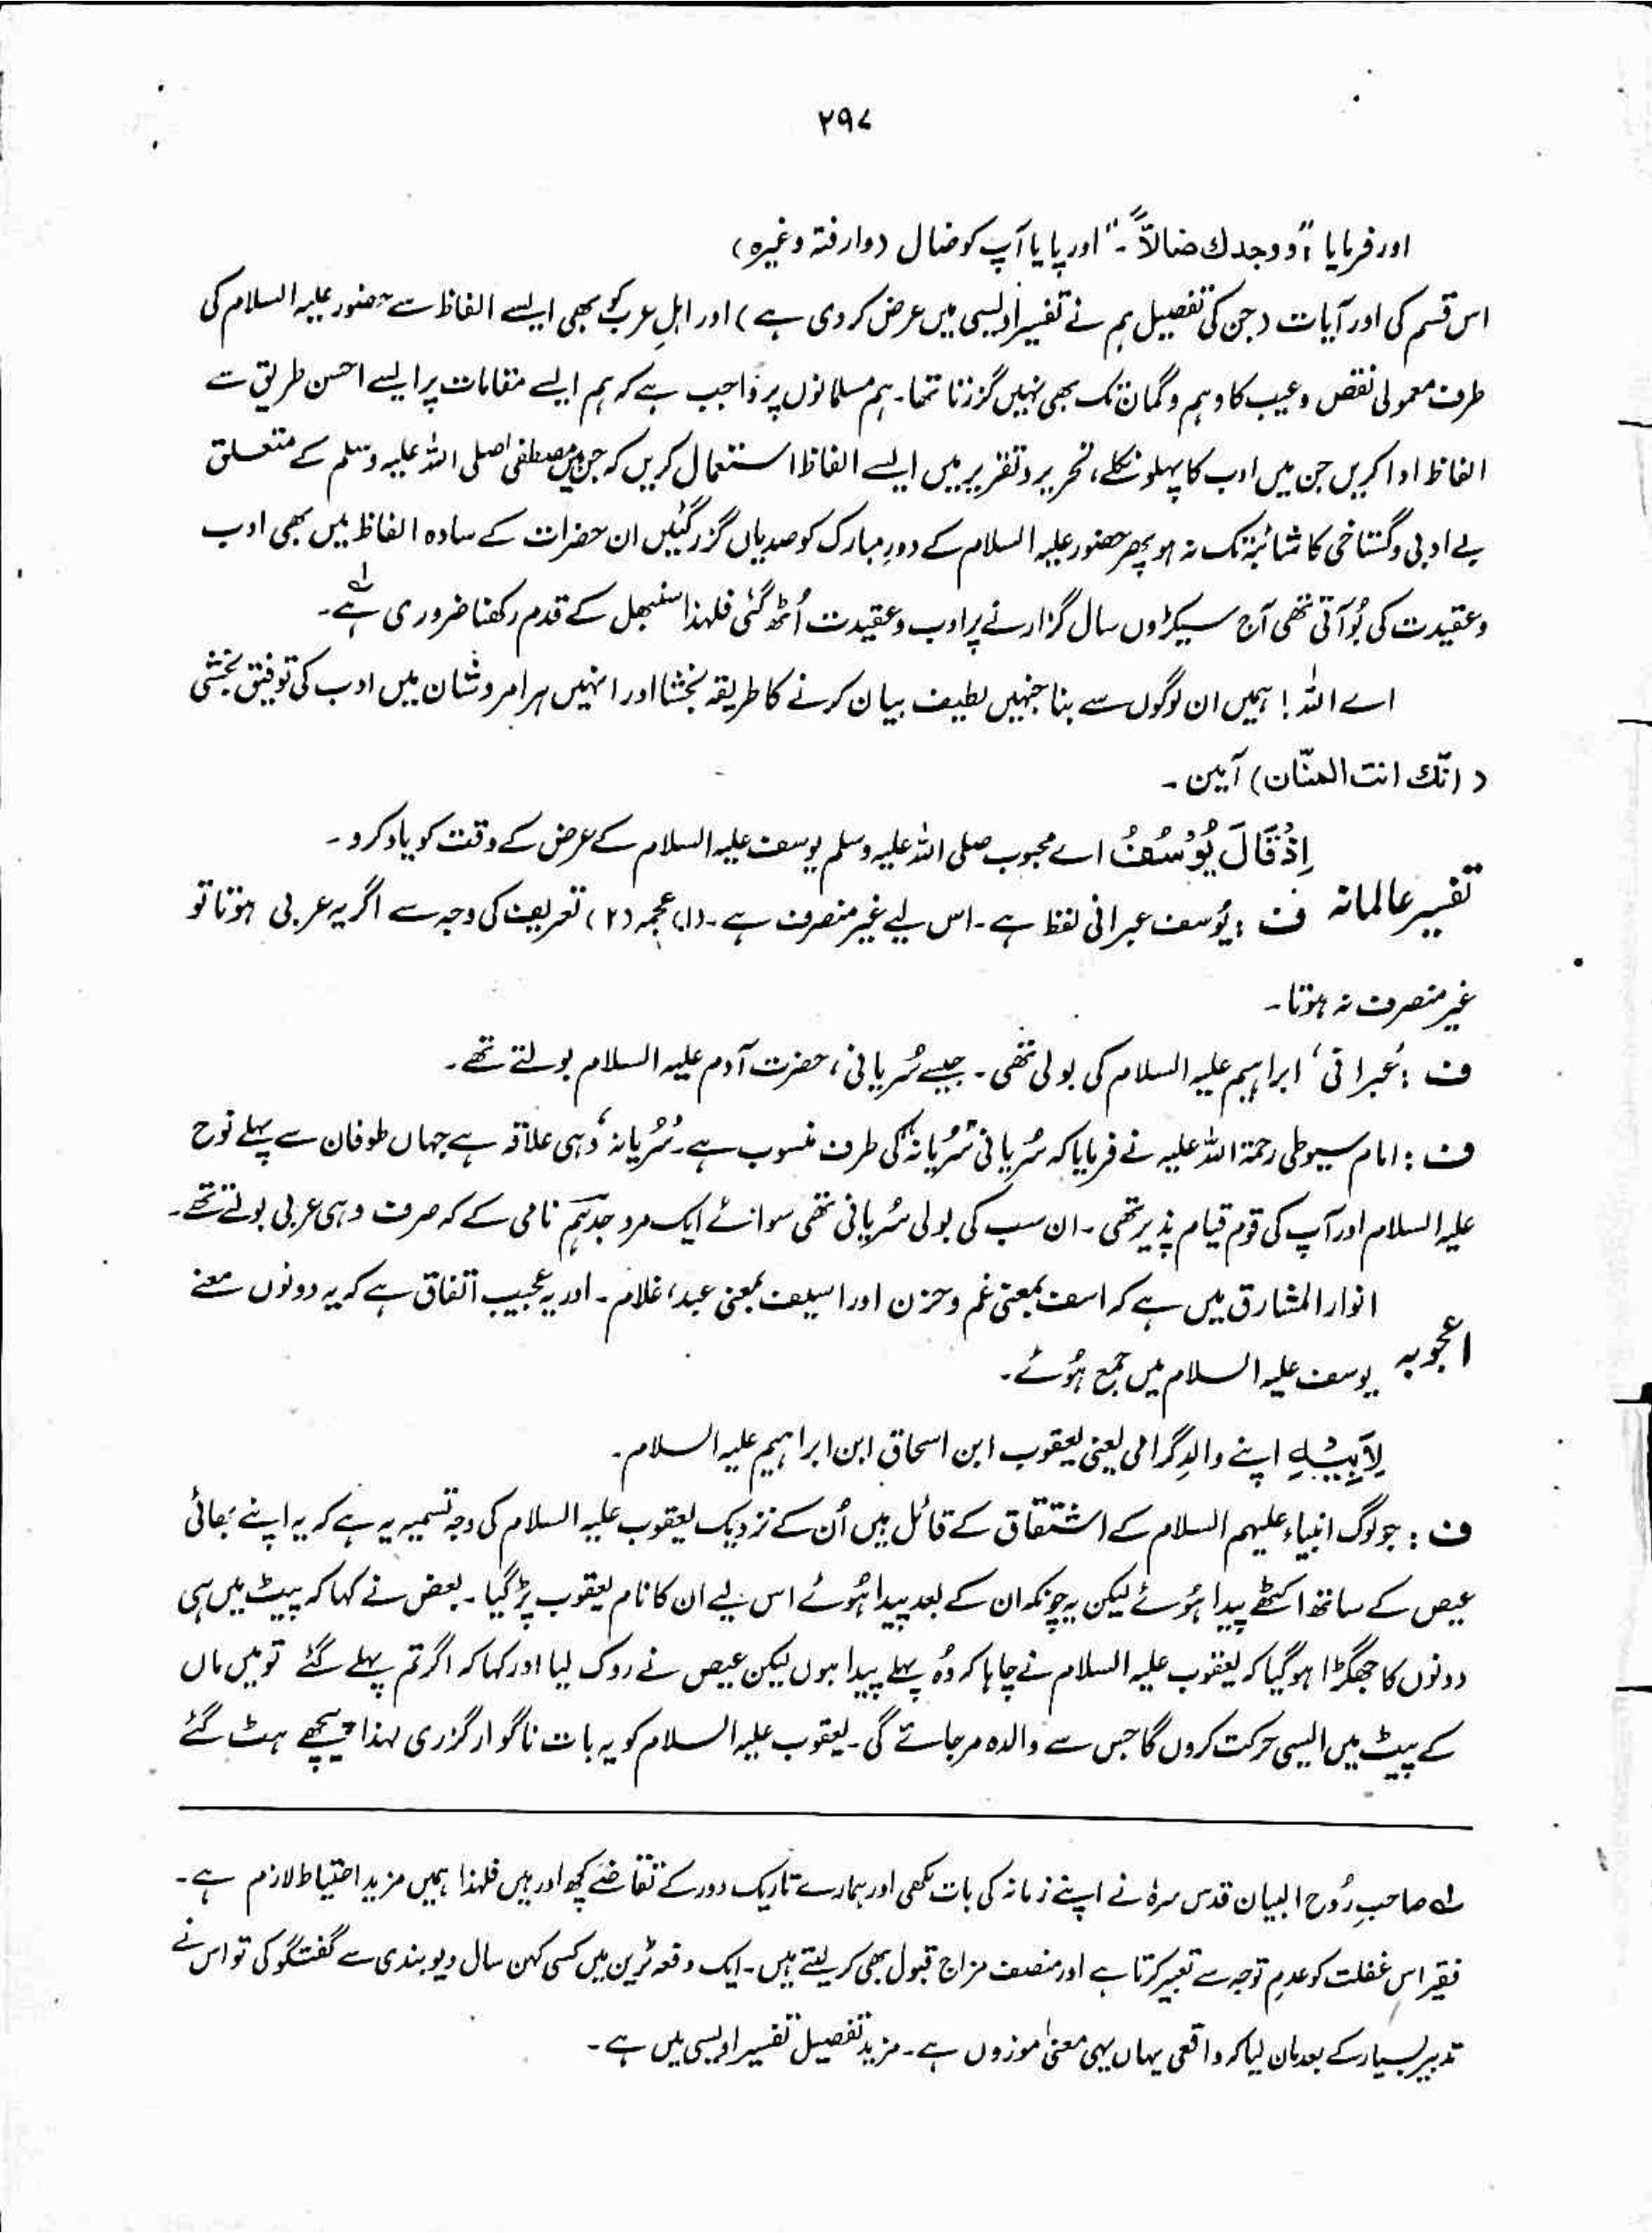 ۲۹۷
اور فرمایا "ووجدك ضالاً۔" اور پایا آپ کو ضال (وارفتہ وغیرہ)
اس قسم کی اور آیات (جن کی تفصیل ہم نے تفسیر اویسی میں عرض کر دی ہے) اور اہلِ عرب کو بھی ایسے الفاظ سے حضور علیہ السلام کی
طرف معمولی نقص و عیب کا وہم و گمان تک بھی نہیں گزرتا تھا۔ ہم مسلمانوں پر واجب ہے کہ ہم ایسے مقامات پر ایسے احسن طریق سے
الفاظ ادا کریں جن میں ادب کا پہلو نکلے، تحریر و تقریر میں ایسے الفاظ استعمال کریں کہ جن میں مصطفٰی صلی اللہ علیہ وسلم کے متعلق
بے ادبی و گستاخی کا شائبہ تک نہ ہو پھر حضور علیہ السلام کے دورِ مبارک کو صدیاں گزر گئیں ان حضرات کے سادہ الفاظ میں بھی ادب
و عقیدت کی بُو آتی تھی آج سیکڑوں سال گزارنے پر ادب و عقیدت اُٹھ گئی فلہذا سنبھل کے قدم رکھنا ضروری ہے۔ لہ
اے اللہ! ہمیں ان لوگوں سے بنا جنہیں لطیف بیان کرنے کا طریقہ بخشا اور انہیں ہر امر و شان میں ادب کی توفیق بخشی
(انّك انت المنّان) آمین۔
اِذْ قَالَ يُوْسُفُ اے محبوب صلی اللہ علیہ وسلم یوسف علیہ السلام کے عرض کے وقت کو یاد کرو۔
تفسیر عالمانہ ف : یُوسف عبرانی لفظ ہے۔ اس لیے غیر منصرف ہے۔ (۱) عجمہ (۲) تعریف کی وجہ سے اگر یہ عربی ہوتا تو
غیر منصرف نہ ہوتا۔
ف : عُبرانی، ابراہیم علیہ السلام کی بولی تھی۔ جیسے سُریانی، حضرت آدم علیہ السلام بولتے تھے۔
ف : امام سیوطی رحمۃ اللہ علیہ نے فرمایا کہ سُریانی "سُریانہ" کی طرف منسوب ہے۔ سُریانہ، وُہی علاقہ ہے جہاں طوفان سے پہلے نوح
علیہ السلام اور آپ کی قوم قیام پذیر تھی۔ ان سب کی بولی سُریانی تھی سوائے ایک مرد جدہم نامی کے کہ صرف وہی عربی بولتے تھے۔
اعجوبہ انوار المشارق میں ہے کہ اسف بمعنی غم و حزن اور اسیف بمعنی عبد، غلام۔ اور یہ عجیب اتفاق ہے کہ یہ دونوں معنے
یوسف علیہ السلام میں جمع ہُوئے۔
لِاَبِیْہِ اپنے والدِ گرامی یعنی یعقوب ابن اسحاق ابن ابراہیم علیہ السلام۔
ف : جو لوگ انبیاء علیہم السلام کے اشتقاق کے قائل ہیں اُن کے نزدیک یعقوب علیہ السلام کی وجہ تسمیہ یہ ہے کہ یہ اپنے بھائی
عیص کے ساتھ اکٹھے پیدا ہُوئے لیکن یہ چونکہ ان کے بعد پیدا ہُوئے اس لیے ان کا نام یعقوب پڑ گیا۔ بعض نے کہا کہ پیٹ میں ہی
دونوں کا جھگڑا ہو گیا کہ یعقوب علیہ السلام نے چاہا کہ وُہ پہلے پیدا ہوں لیکن عیص نے روک لیا اور کہا کہ اگر تم پہلے گئے تو میں ماں
کے پیٹ میں ایسی حرکت کروں گا جس سے والدہ مر جائے گی۔ یعقوب علیہ السلام کو یہ بات ناگوار گزری لہذا پیچھے ہٹ گئے
لہ صاحبِ رُوح البیان قدس سرہٗ نے اپنے زمانہ کی بات لکھی اور ہمارے تاریک دور کے تقاضے کچھ اور ہیں فلہذا ہمیں مزید احتیاط لازم ہے۔
فقیر اس غفلت کو عدمِ توجہ سے تعبیر کرتا ہے اور منصف مزاج قبول بھی کر لیتے ہیں۔ ایک دفعہ ٹرین میں کسی کہن سال دیوبندی سے گفتگو کی تو اس نے
تدبیر بسیار کے بعد مان لیا کہ واقعی یہاں یہی معنیٰ موزوں ہے۔ مزید تفصیل تفسیر اویسی میں ہے۔